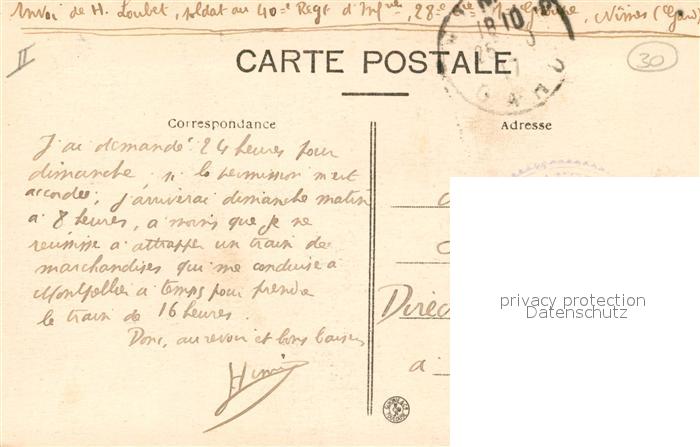 Envoi de H. Loubet, soldat au 40e Régt d'Infrie, 28e Cie, Nîmes (Gard)
II
18 10
25
GARD
30
CARTE POSTALE
Correspondance
Adresse
J'ai demandé 24 heures pour
dimanche, si la permission m'est
accordée, j'arriverai dimanche matin
à 8 heures, à moins que je ne
réussisse à attrapper un train de
marchandises qui me conduise à
Montpellier à temps pour prendre
le train de 16 heures.
Donc, au revoir et bons baisers
Direc
à
privacy protection
Datenschutz